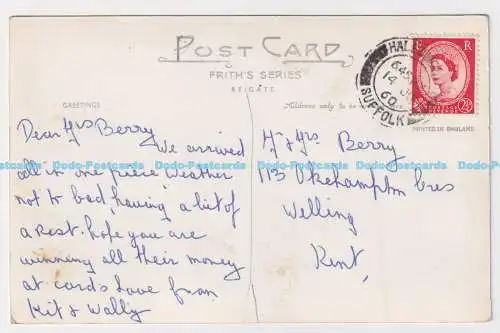 POST CARD
FRITH'S SERIES
REIGATE
GREETINGS
Address only to be
HAL
6 45
14 J
60
SUFFOLK
E R
2½D
PRINTED IN ENGLAND
Dear Mrs Berry
We arrived
all in one piece weather
not to bad, having a bit of
a rest. hope you are
winning all their money
at cards Love from
Kit & Wally
Mr & Mrs Berry
113 Okehampton Cres
Welling
Kent,
Dodo-Postcards Dodo-Postcards Dodo-Postcards Dodo-Postcards Dodo-Postcards